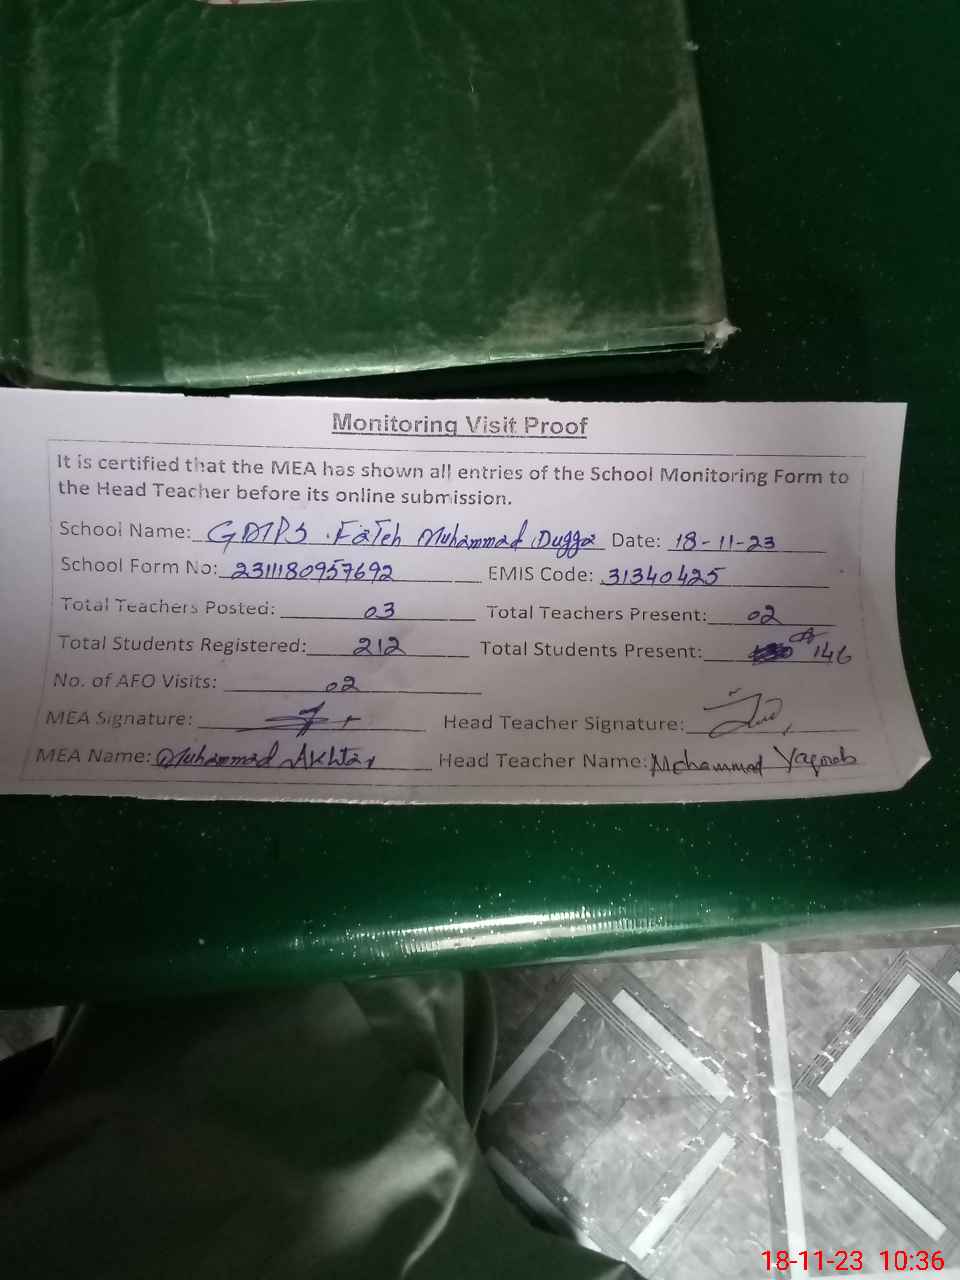 Monitoring Visit Proof
It is certified that the MEA has shown all entries of the School Monitoring Form to
the Head Teacher before its online submission.
School Name: GDMPS Fateh Muhammad Dugga Date: 18-11-23
School Form No: 231180957692 EMIS Code: 31340425
Total Teachers Posted: 03 Total Teachers Present: 02
Total Students Registered: 212 Total Students Present: 146
No. of AFO Visits: 02
MEA Signature: Head Teacher Signature:
MEA Name: Muhammad Akhtar Head Teacher Name: Mohammad Yaqoob
18-11-23 10:36